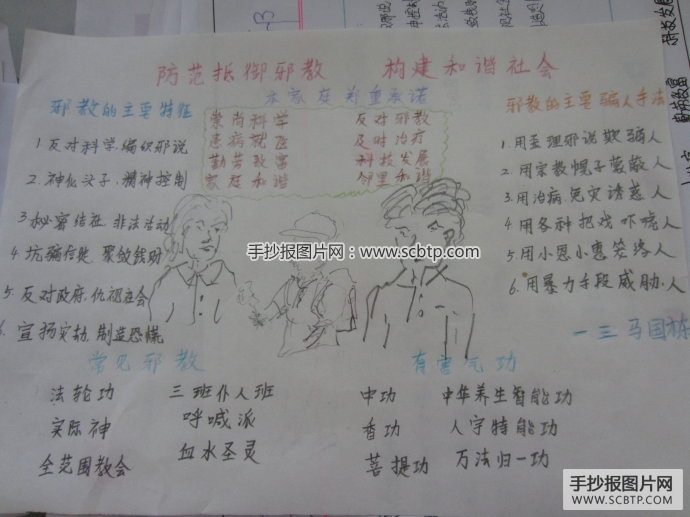 防范抵御邪教 构建和谐社会
本家庭郑重承诺
崇尚科学 反对邪教
患病就医 及时治疗
勤劳致富 科技发展
家庭和谐 邻里和谐
邪教的主要特征
1.反对科学.编织邪说
2.神化头子.精神控制
3.秘密结社.非法活动
4.坑骗信徒.聚敛钱财
5.反对政府.仇视社会
6.宣扬灾劫.制造恐慌
邪教的主要骗人手法
1.用歪理邪说欺骗人
2.用宗教幌子蒙蔽人
3.用治病免灾诱惑人
4.用各种把戏吓唬人
5.用小恩小惠笼络人
6.用暴力手段威胁人
一三马国栋
手抄报图片网:www.scbtp.com
常见邪教
法轮功 三班仆人班
实际神 呼喊派
全范围教会 血水圣灵
有害气功
中功 中华养生智能功
香功 人宇特能功
菩提功 万法归一功
手抄报图片网
WWW.SCBTP.COM